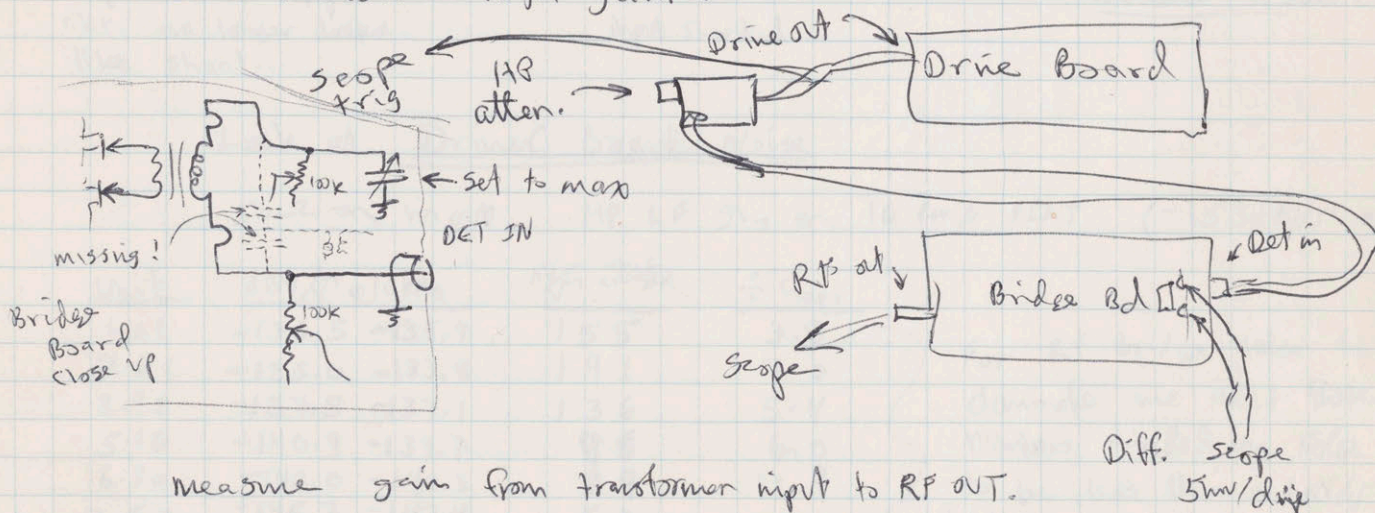 Drive out
Drive Board
scope
trig
HP
atten.
100K
set to max
DET IN
missing!
100K
Bridge
Board
close up
RF out
Bridge Bd
Det in
Scope
Diff. scope
5mv/div
measure gain from transformer input to RF OUT.